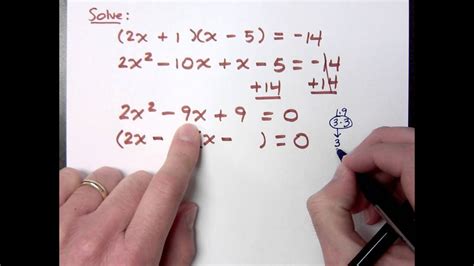 Solve:
(2x + 1)(x - 5) = -14
2x² - 10x + x - 5 = -14
+14 +14
2x² - 9x + 9 = 0
(2x - x - ) = 0
1·9
3·3
3